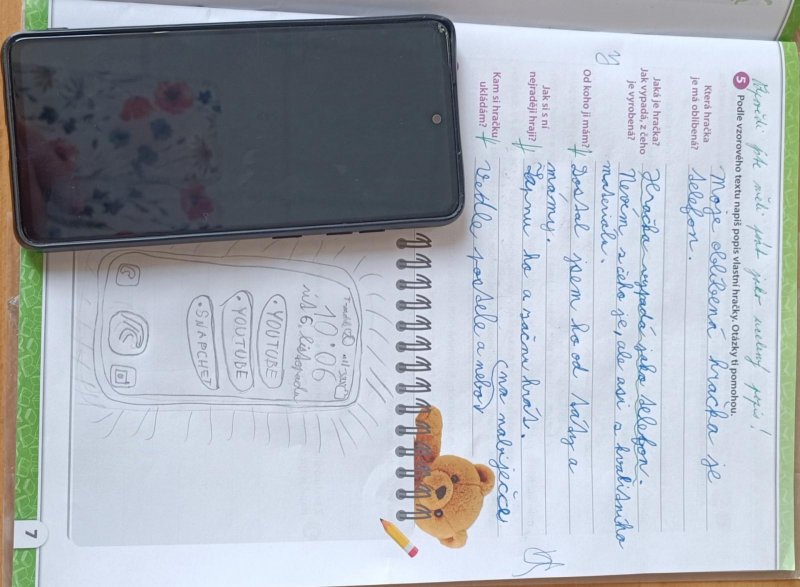 jak měli psát jako uvedený popis!
5 Podle vzorového textu napiš popis vlastní hračky. Otázky ti pomohou.
Která hračka
je má oblíbená?
Moje oblíbená hračka je
telefon.
Jaká je hračka?
Jak vypadá, z čeho
je vyrobená?
Hračka vypadá jako telefon.
Nevím s čeho je, ale asi s kvalitního
materialu.
Od koho ji mám?
Dostal jsem ho od táty a
mámy.
Jak si s ní
nejraději hraji?
Zapnu ho a začnu hrát.
Kam si hračku
ukládám?
(na nabiječce
Vedle postele a nebo
10:06
6. listopadu
YOUTUBE
YOUTUBE
SNAPCHET
7